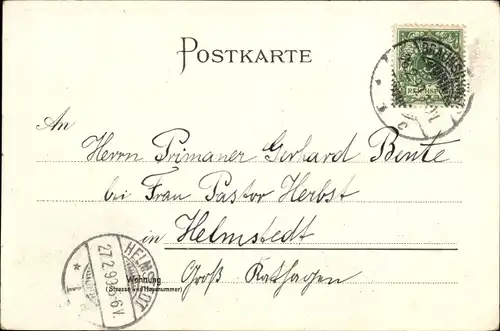 POSTKARTE
REICHSPOST
An
Herrn Primaner Gerhard Bente
bei Frau Pastor Herbst
in Helmstedt
Wohnung
(Strasse und Hausnummer)
Groß Katthagen
HELMSTEDT
27.2.99.5-6V.